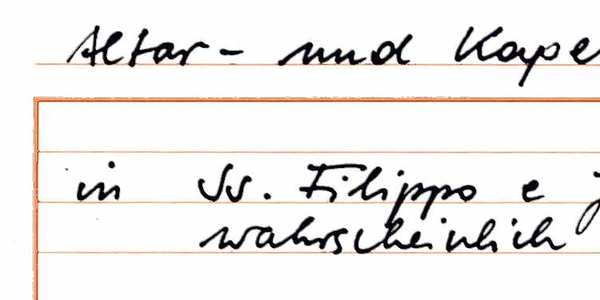 Altar- und Kape
in Ss. Filippo e
wahrscheinlich